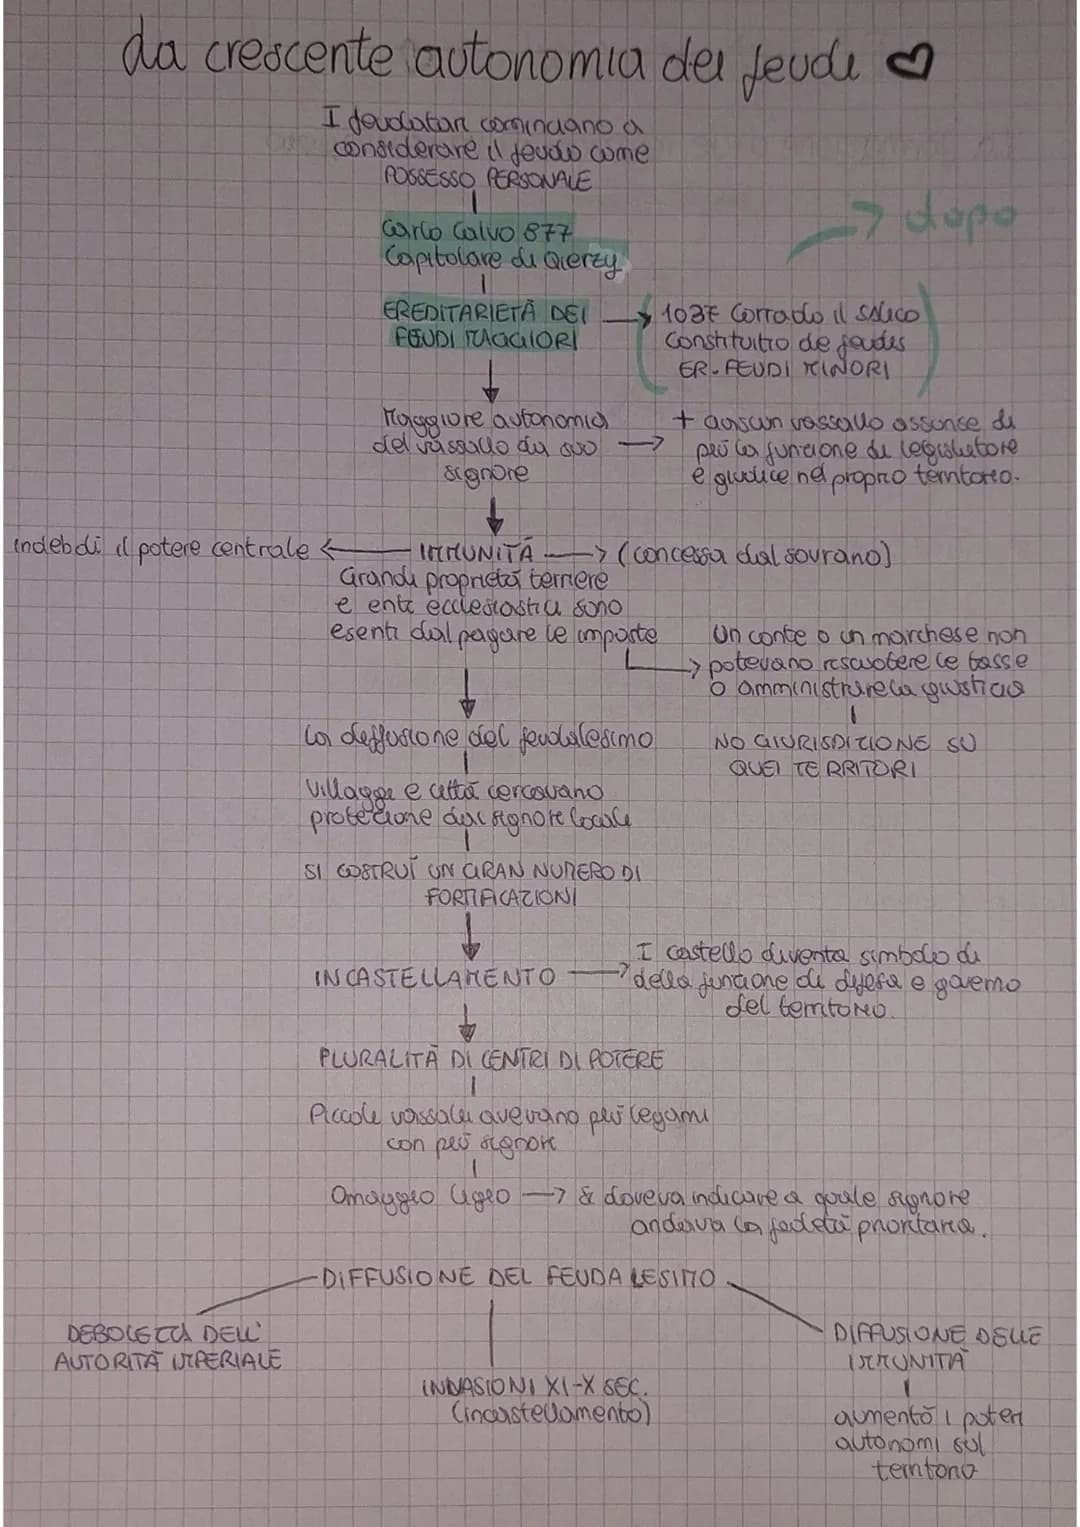 La crescente autonomia dei feudi
I feudatari cominciano a
considerare il feudo come
POSSESSO PERSONALE
Carlo Calvo 877
Capitolare di Qierzy
→ dopo
EREDITARIETÀ DEI
FEUDI MAGGIORI
→ 1037 Corrado il Salico
Constituitio de feudis
ER. FEUDI MINORI
Maggiore autonomia
del vassallo dal suo
signore
→ + ciascun vassallo assunse di
più la funzione di legislatore
e giudice nel proprio territorio.
indebolì il potere centrale ← IMMUNITÀ → (concessa dal sovrano)
Grandi proprietà terriere
e enti ecclesiastici sono
esenti dal pagare le imposte
→ Un conte o un marchese non
potevano riscuotere le tasse
o amministrare la giustizia
NO GIURISDIZIONE SU
QUEI TERRITORI
La diffusione del feudalesimo
Villaggi e città cercavano
protezione dal signore locale
SI COSTRUÌ UN GRAN NUMERO DI
FORTIFICAZIONI
INCASTELLAMENTO → I castello diventa simbolo di
della funzione di difesa e governo
del territorio.
PLURALITÀ DI CENTRI DI POTERE
Piccoli vassalli avevano più legami
con più signori
Omaggio ligeo → si doveva indicare a quale signore
andava la fedeltà prioritaria.
DIFFUSIONE DEL FEUDALESIMO
DEBOLEZZA DELL'
AUTORITÀ IMPERIALE
INVASIONI XI-X SEC.
(incastellamento)
DIFFUSIONE DELLE
IMMUNITÀ
aumentò i poteri
autonomi sul
territorio